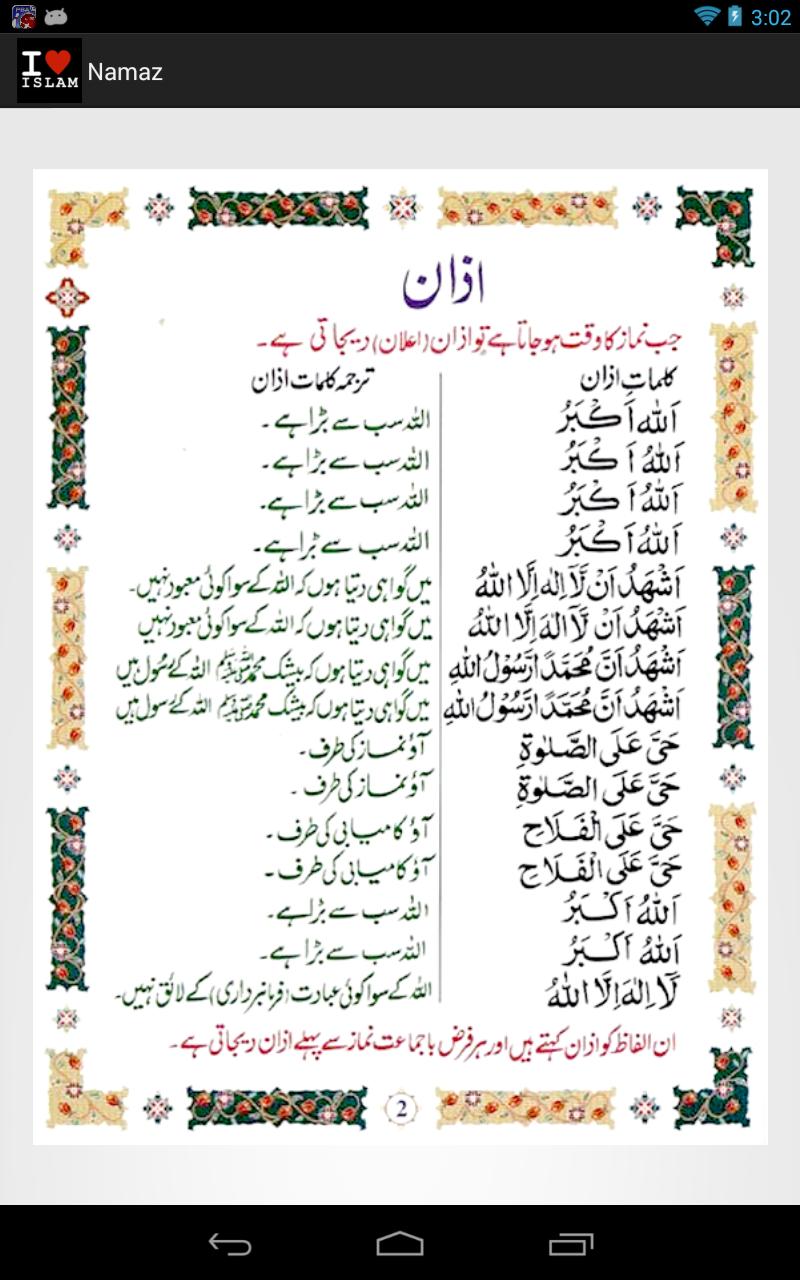 3:02
I ❤ ISLAM
Namaz
اذان
جب نماز کا وقت ہو جاتا ہے تو اذان (اعلان) دیجاتی ہے۔
کلماتِ اذان ترجمہ کلمات اذان
اَللّٰهُ اَكْبَرُ اللہ سب سے بڑا ہے۔
اَللّٰهُ اَكْبَرُ اللہ سب سے بڑا ہے۔
اَللّٰهُ اَكْبَرُ اللہ سب سے بڑا ہے۔
اَللّٰهُ اَكْبَرُ اللہ سب سے بڑا ہے۔
اَشْهَدُ اَنْ لَّآ اِلٰهَ اِلَّا اللّٰهُ میں گواہی دیتا ہوں کہ اللہ کے سوا کوئی معبود نہیں۔
اَشْهَدُ اَنْ لَّآ اِلٰهَ اِلَّا اللّٰهُ میں گواہی دیتا ہوں کہ اللہ کے سوا کوئی معبود نہیں
اَشْهَدُ اَنَّ مُحَمَّدًا رَّسُوْلُ اللّٰهِ میں گواہی دیتا ہوں کہ بیشک محمد ﷺ اللہ کے رسول ہیں
اَشْهَدُ اَنَّ مُحَمَّدًا رَّسُوْلُ اللّٰهِ میں گواہی دیتا ہوں کہ بیشک محمد ﷺ اللہ کے رسول ہیں
حَیَّ عَلَی الصَّلٰوةِ آؤ نماز کی طرف۔
حَیَّ عَلَی الصَّلٰوةِ آؤ نماز کی طرف۔
حَیَّ عَلَی الْفَلَاحِ آؤ کامیابی کی طرف۔
حَیَّ عَلَی الْفَلَاحِ آؤ کامیابی کی طرف۔
اَللّٰهُ اَكْبَرُ اللہ سب سے بڑا ہے۔
اَللّٰهُ اَكْبَرُ اللہ سب سے بڑا ہے۔
لَآ اِلٰهَ اِلَّا اللّٰهُ اللہ کے سوا کوئی عبادت (فرمانبرداری) کے لائق نہیں۔
ان الفاظ کو اذان کہتے ہیں اور ہر فرض با جماعت نماز سے پہلے اذان دیجاتی ہے۔
2